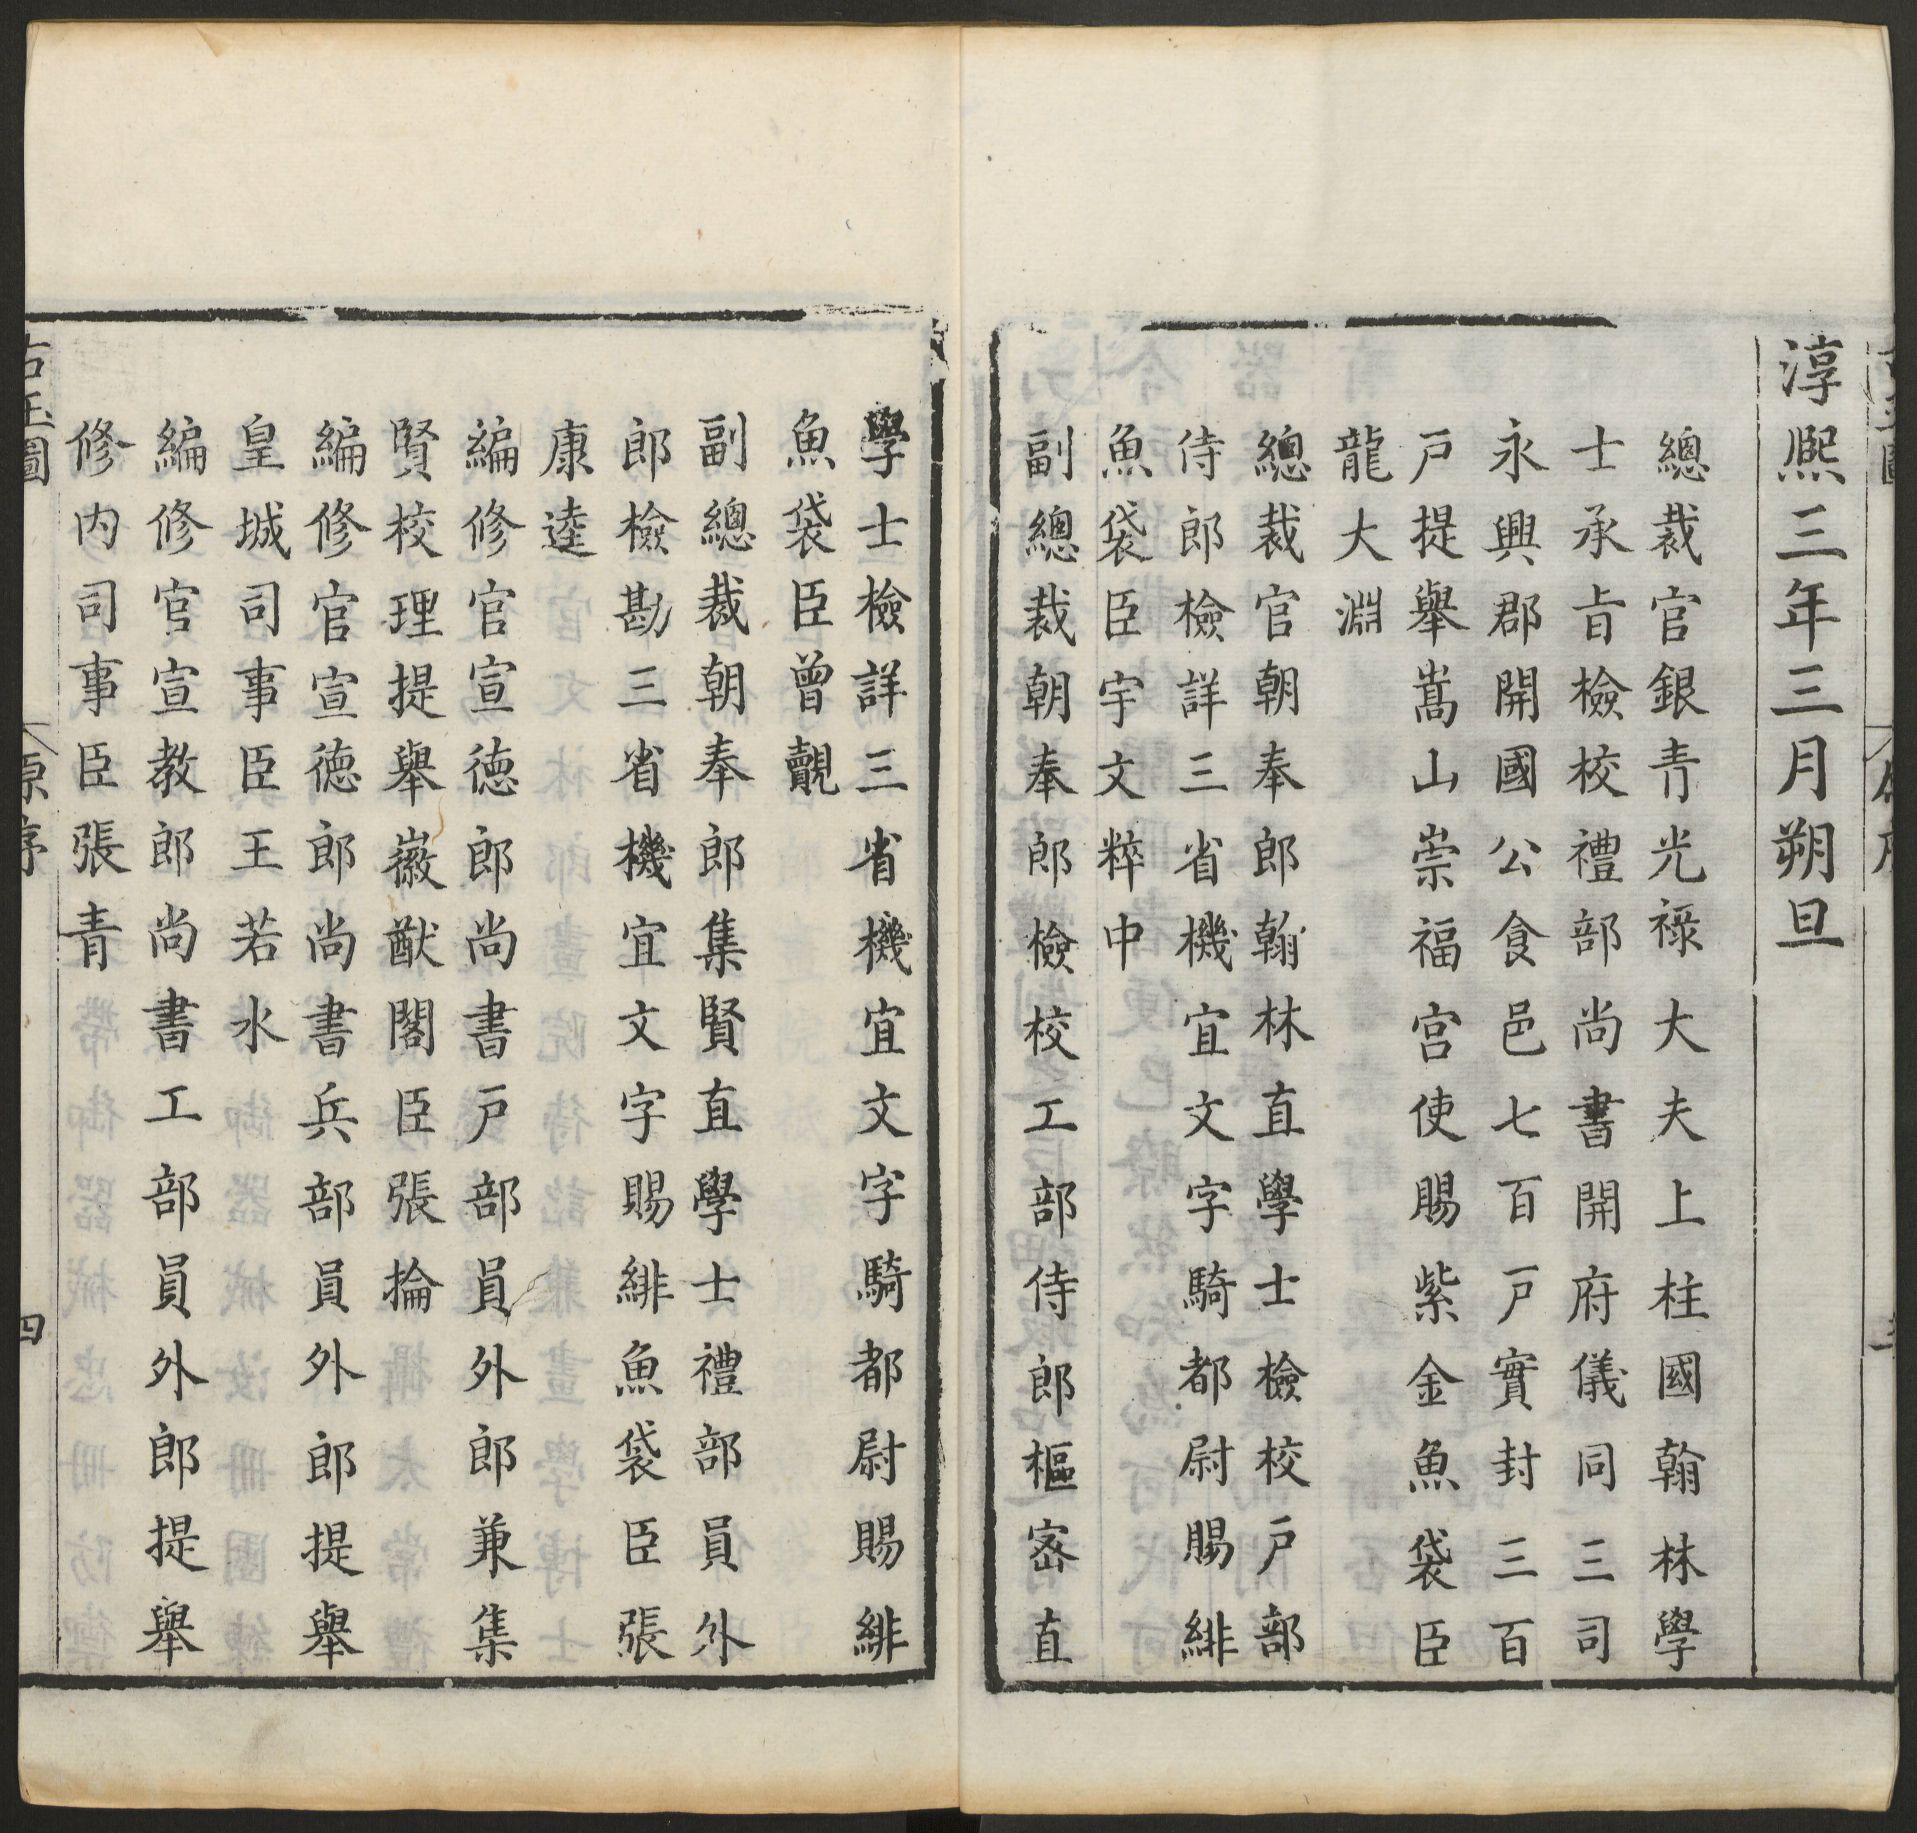 淳熙三年三月朔旦
總裁官銀青光祿大夫上柱國翰林學
士承旨檢校禮部尚書開府儀同三司
永興郡開國公食邑七百戸實封三百
戸提舉嵩山崇福宮使賜紫金魚袋臣
龍大淵
總裁官朝奉郎翰林直學士檢校戸部
侍郎檢詳三省機宜文字騎都尉賜緋
魚袋臣宇文粹中
副總裁朝奉郎檢校工部侍郎樞密直
學士檢詳三省機宜文字騎都尉賜緋
魚袋臣曾覿
副總裁朝奉郎集賢直學士禮部員外
郎檢勘三省機宜文字賜緋魚袋臣張
康逵
編修官宣德郎尚書戸部員外郎兼集
賢校理提舉徽猷閣臣張掄
編修官宣德郎尚書兵部員外郎提舉
皇城司事臣王若水
編修官宣教郎尚書工部員外郎提舉
修内司事臣張青
古玉圖
原序
四